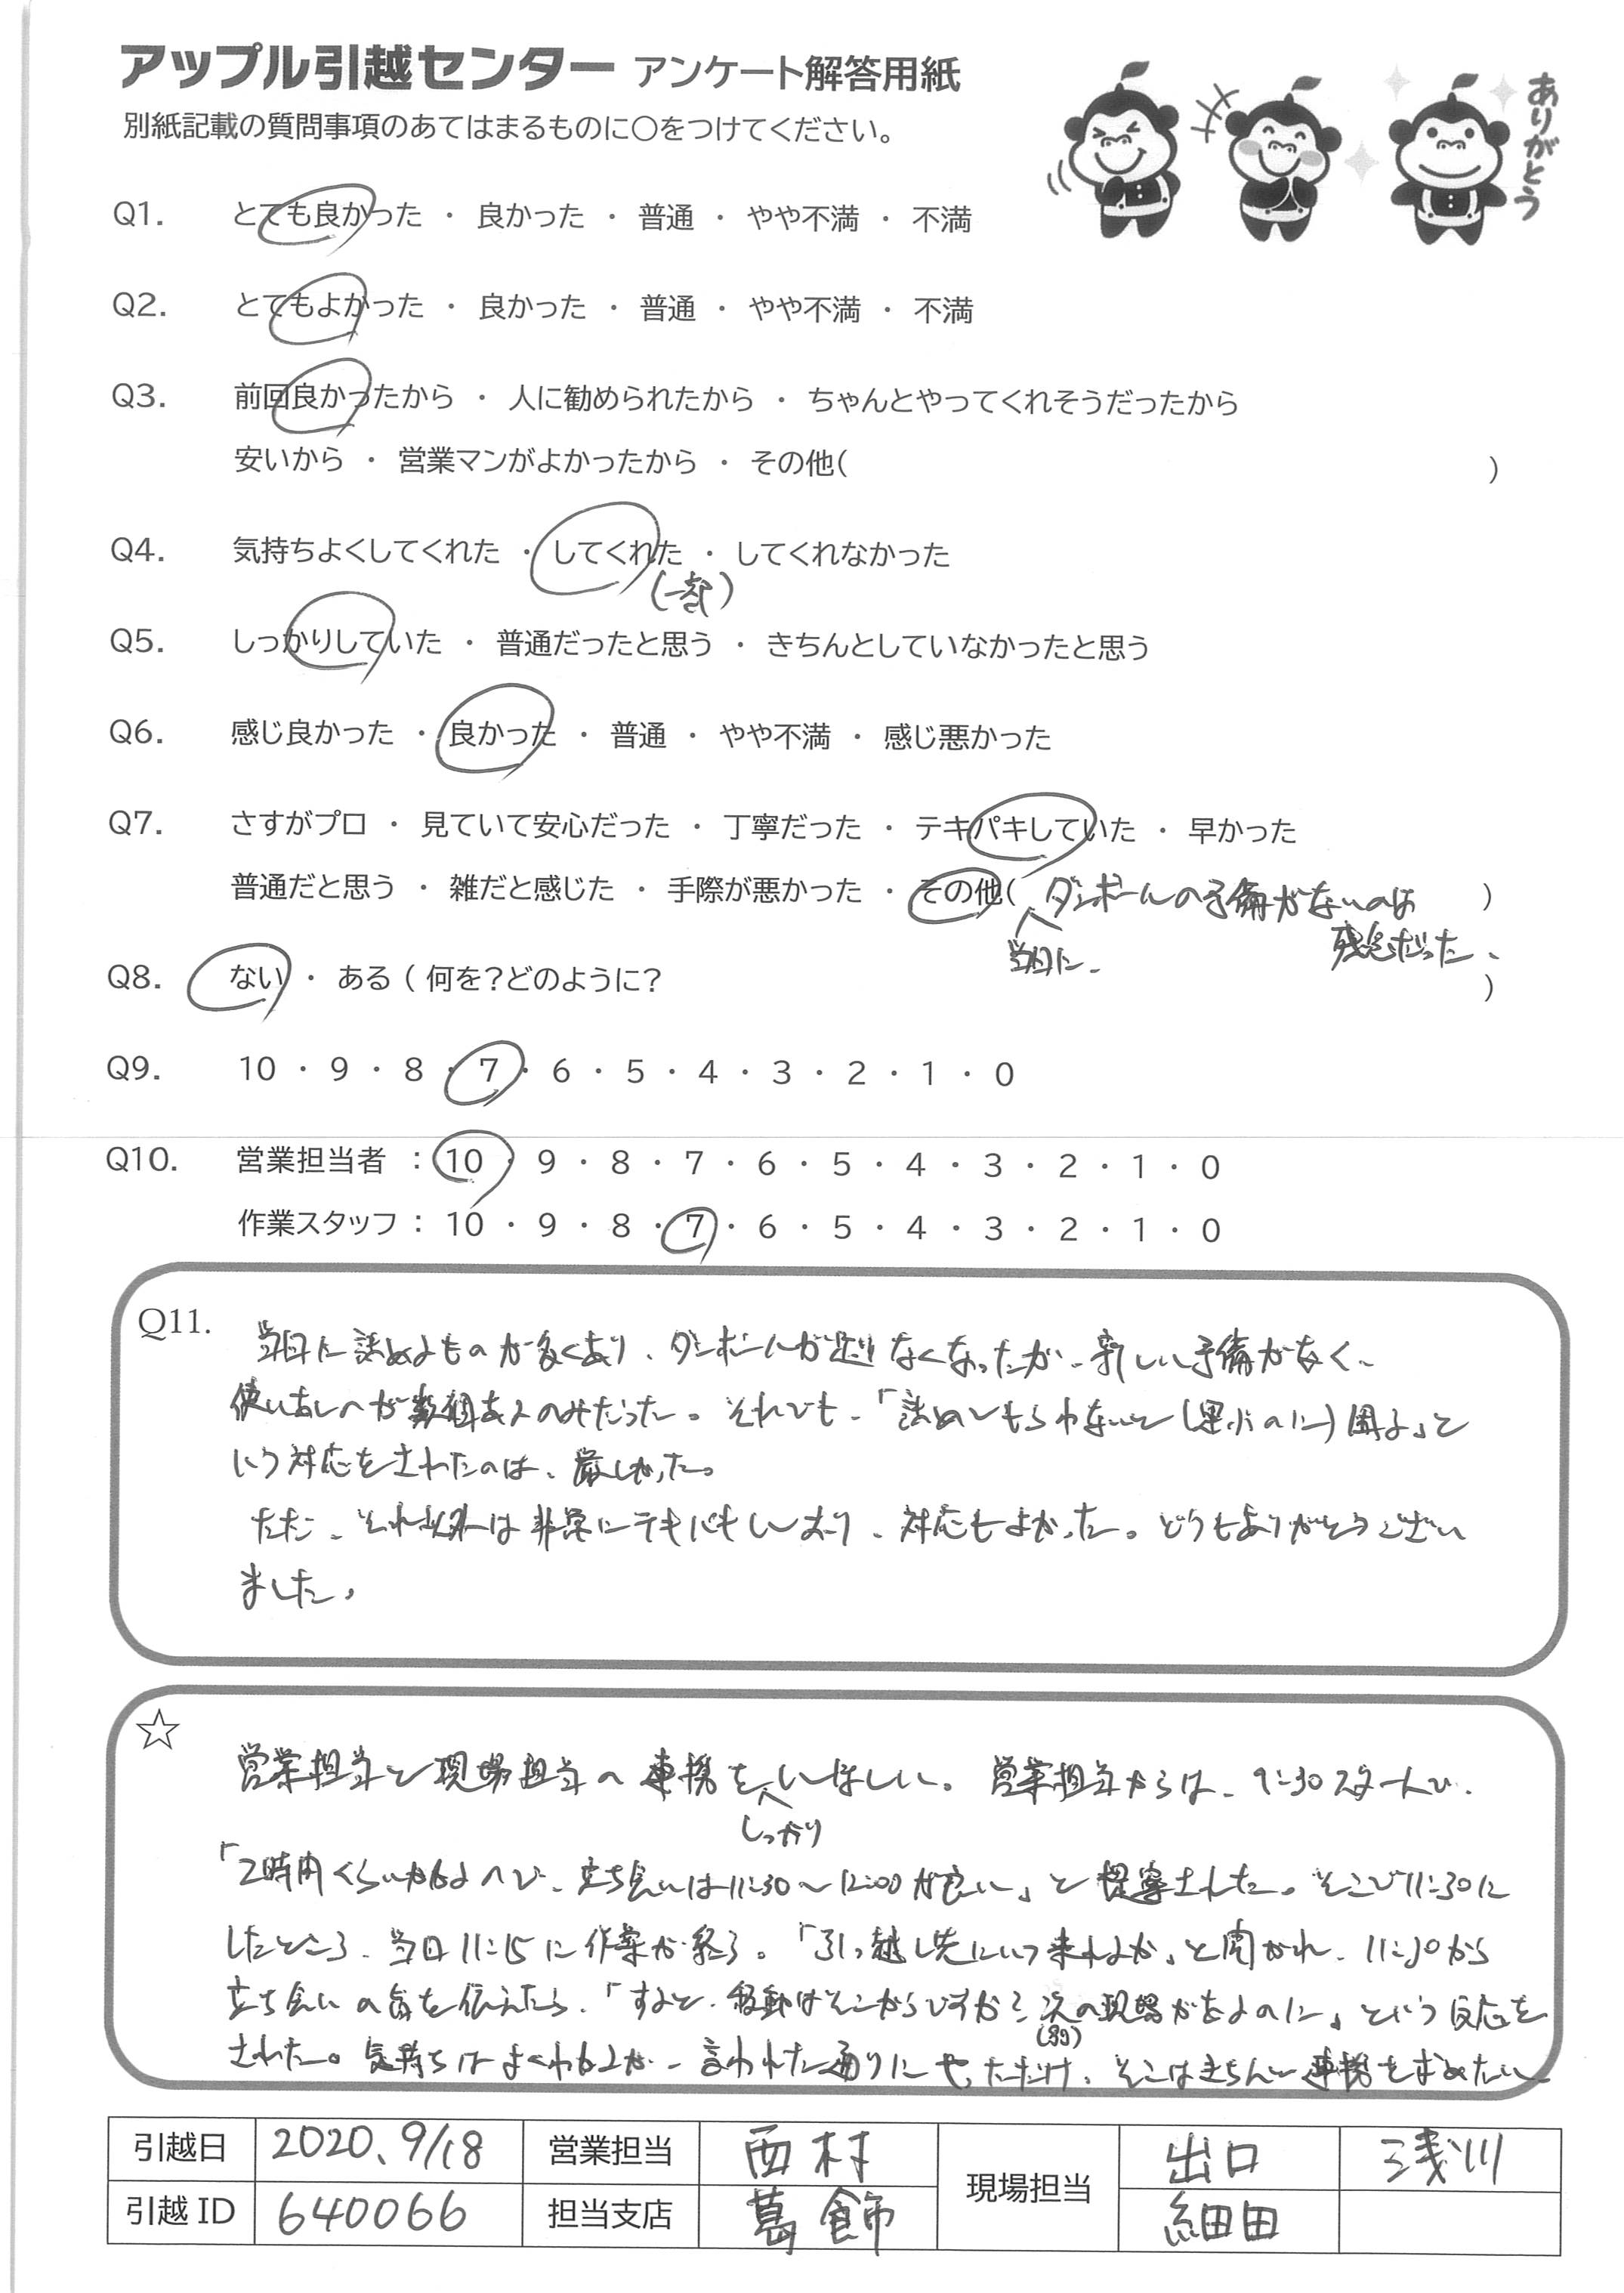 アップル引越センター アンケート解答用紙
ありがとう
別紙記載の質問事項のあてはまるものに○をつけてください。
Q1. とても良かった ・ 良かった ・ 普通 ・ やや不満 ・ 不満
Q2. とてもよかった ・ 良かった ・ 普通 ・ やや不満 ・ 不満
Q3. 前回良かったから ・ 人に勧められたから ・ ちゃんとやってくれそうだったから
安いから ・ 営業マンがよかったから ・ その他( )
Q4. 気持ちよくしてくれた ・ してくれた ・ してくれなかった
(一部)
Q5. しっかりしていた ・ 普通だったと思う ・ きちんとしていなかったと思う
Q6. 感じ良かった ・ 良かった ・ 普通 ・ やや不満 ・ 感じ悪かった
Q7. さすがプロ ・ 見ていて安心だった ・ 丁寧だった ・ テキパキしていた ・ 早かった
普通だと思う ・ 雑だと感じた ・ 手際が悪かった ・ その他( ダンボールの予備がないのは )
当日に、 残念だった、
Q8. ない ・ ある ( 何を?どのように? )
Q9. 10 ・ 9 ・ 8 ・ 7 ・ 6 ・ 5 ・ 4 ・ 3 ・ 2 ・ 1 ・ 0
Q10. 営業担当者 : 10 ・ 9 ・ 8 ・ 7 ・ 6 ・ 5 ・ 4 ・ 3 ・ 2 ・ 1 ・ 0
作業スタッフ : 10 ・ 9 ・ 8 ・ 7 ・ 6 ・ 5 ・ 4 ・ 3 ・ 2 ・ 1 ・ 0
Q11. 当日に詰めるものが多くあり、ダンボールが足りなくなったが、新しい予備がなく、
使い古しのが数個あるのみだった。それでも、「詰めてもらわないと(運ぶのに)困る」と
いう対応をされたのは、厳しかった。
ただ、それ以外は非常にテキパキしており、対応もよかった。どうもありがとうござい
ました。
☆ 営業担当と現場担当の連携をしてほしい。営業担当からは、9:30スタートで、
しっかり
「2時間くらいかかるので、立ち会いは11:30〜12:00が良い」と提案された。そこで11:30に
したところ、当日11:15に作業が終る。「引っ越し先にいつ来れるか」と聞かれ、11:30から
立ち会いの旨を伝えたら、「すると、移動はそこからですか?次の現場があるのに」という反応を
(別)
された。気持ちはよくわかるが、言われた通りにやっただけ、そこはきちんと連携を求めたい
引越日 2020、9/18 営業担当 西村 現場担当 出口 浅川
引越ID 640066 担当支店 葛飾 細田